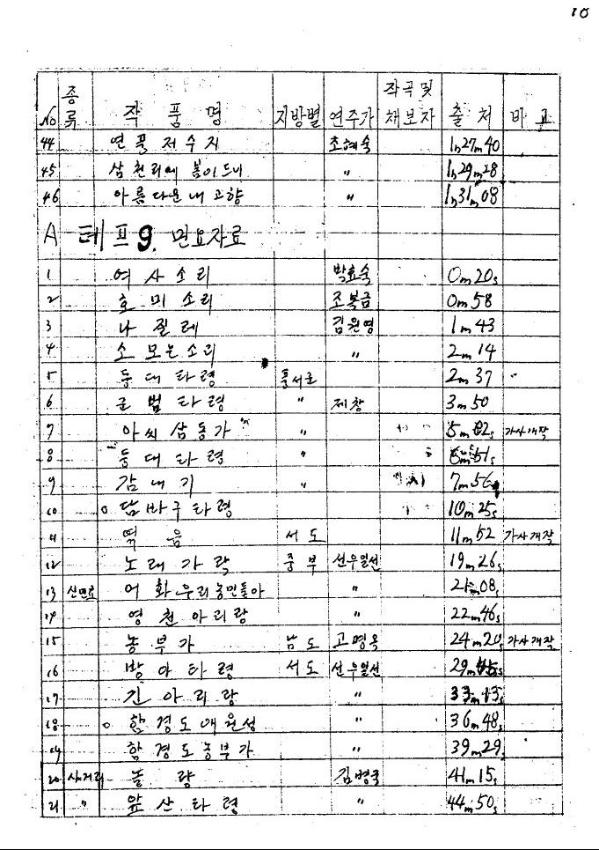 10
No 종류 작품명 지방별 연주가 작곡및채보자 출처 비고
44 연풍저수지 조혜숙 1h27m40
45 삼천리에 봄이 드네 〃 1h29m28
46 아름다운 내 고향 〃 1h31m08
A 테프 9. 민요자료
1 여사소리 박효숙 0m20s
2 호미소리 조복금 0m58
3 나질레 김원영 1m43
4 소모는소리 〃 2m14
5 둥대타령 2m37
6 군범타령 〃 제창 3m50
7 아씨삼동가 〃 가사개작
8 둥대타령 〃
9 감내기 〃 7m56
10 ○ 담바구타령 10m25s
11 떡음 서도 11m52 가사개작
12 노래가락 중부 선우일선 19m26s
13 신민요 어화우리농민들아 〃 21m08s
14 영천아리랑 〃 22m46s
15 농부가 남도 고명옥 24m20s 가사개작
16 방아타령 서도 선우일선
17 긴아리랑 〃 33m13s
18 ○ 함경도애원성 〃 36m48s
19 함경도농부가 〃 39m29s
20 사거리 놀량 김병국 41m15s
21 〃 앞산타령 〃 44m50s